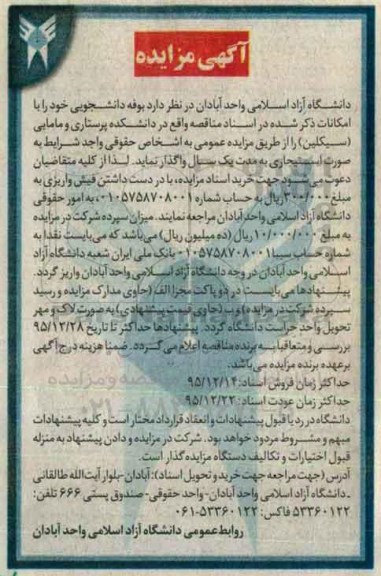 آگهی مزایده
دانشگاه آزاد اسلامی واحد آبادان در نظر دارد بوفه دانشجویی خود را با
امکانات ذکر شده در اسناد مناقصه واقع در دانشکده پرستاری و مامایی
(سیکلین) را از طریق مزایده عمومی به اشخاص حقوقی واجد شرایط به
صورت استیجاری به مدت یک سال واگذار نماید. لذا از کلیه متقاضیان
دعوت می شود جهت خرید اسناد مزایده، با در دست داشتن فیش واریزی به
مبلغ ۳۰۰/۰۰۰ ریال به حساب شماره ۰۱۰۵۷۵۸۷۰۸۰۰۱ به امور حقوقی
دانشگاه آزاد اسلامی واحد آبادان مراجعه نمایند. میزان سپرده شرکت در مزایده
به مبلغ ۱۰/۰۰۰/۰۰۰ ریال (ده میلیون ریال) می باشد که می بایست نقدا به
شماره حساب سیبا ۰۱۰۵۷۵۸۷۰۸۰۰۱ بانک ملی ایران شعبه دانشگاه آزاد
اسلامی واحد آبادان در وجه دانشگاه آزاد اسلامی واحد آبادان واریز گردد.
پیشنهادها می بایست در دو پاکت مجزا الف (حاوی مدارک مزایده و رسید
سپرده شرکت در مزایده) و ب (حاوی قیمت پیشنهادی) به صورت لاک و مهر
تحویل واحد حراست دانشگاه گردد. پیشنهادها حداکثر تا تاریخ ۹۵/۱۲/۲۸
بررسی و متعاقبا به برنده مناقصه اعلام می گردد. ضمنا هزینه درج آگهی
بر عهده برنده مزایده می باشد.
حداکثر زمان فروش اسناد: ۹۵/۱۲/۱۴
حداکثر زمان عودت اسناد: ۹۵/۱۲/۲۲
دانشگاه در رد یا قبول پیشنهادات و انعقاد قرارداد مختار است و کلیه پیشنهادات
مبهم و مشروط مردود خواهد بود. شرکت در مزایده و دادن پیشنهاد به منزله
قبول اختیارات و تکالیف دستگاه مزایده گذار است.
آدرس (جهت مراجعه جهت خرید و تحویل اسناد): آبادان-بلوار آیت الله طالقانی
- دانشگاه آزاد اسلامی واحد آبادان- واحد حقوقی- صندوق پستی ۶۶۶ تلفن:
۵۳۳۶۰۱۲۲ فاکس: ۵۳۳۶۰۱۲۲-۰۶۱
روابط عمومی دانشگاه آزاد اسلامی واحد آبادان